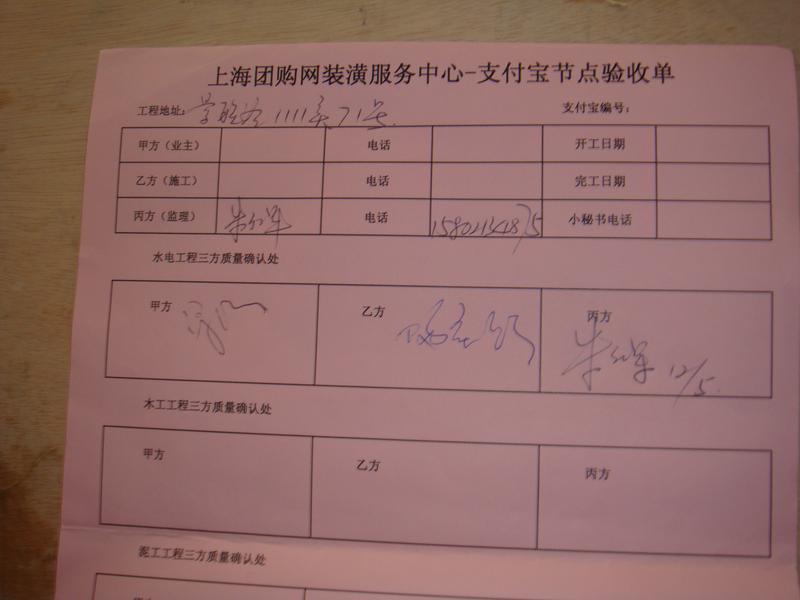 上海团购网装潢服务中心-支付宝节点验收单
工程地址: 1111弄71号 支付宝编号:
甲方（业主） 电话 开工日期
乙方（施工） 电话 完工日期
丙方（监理） 电话 小秘书电话
水电工程三方质量确认处
甲方 乙方 丙方
12/5
木工工程三方质量确认处
甲方 乙方 丙方
泥工工程三方质量确认处